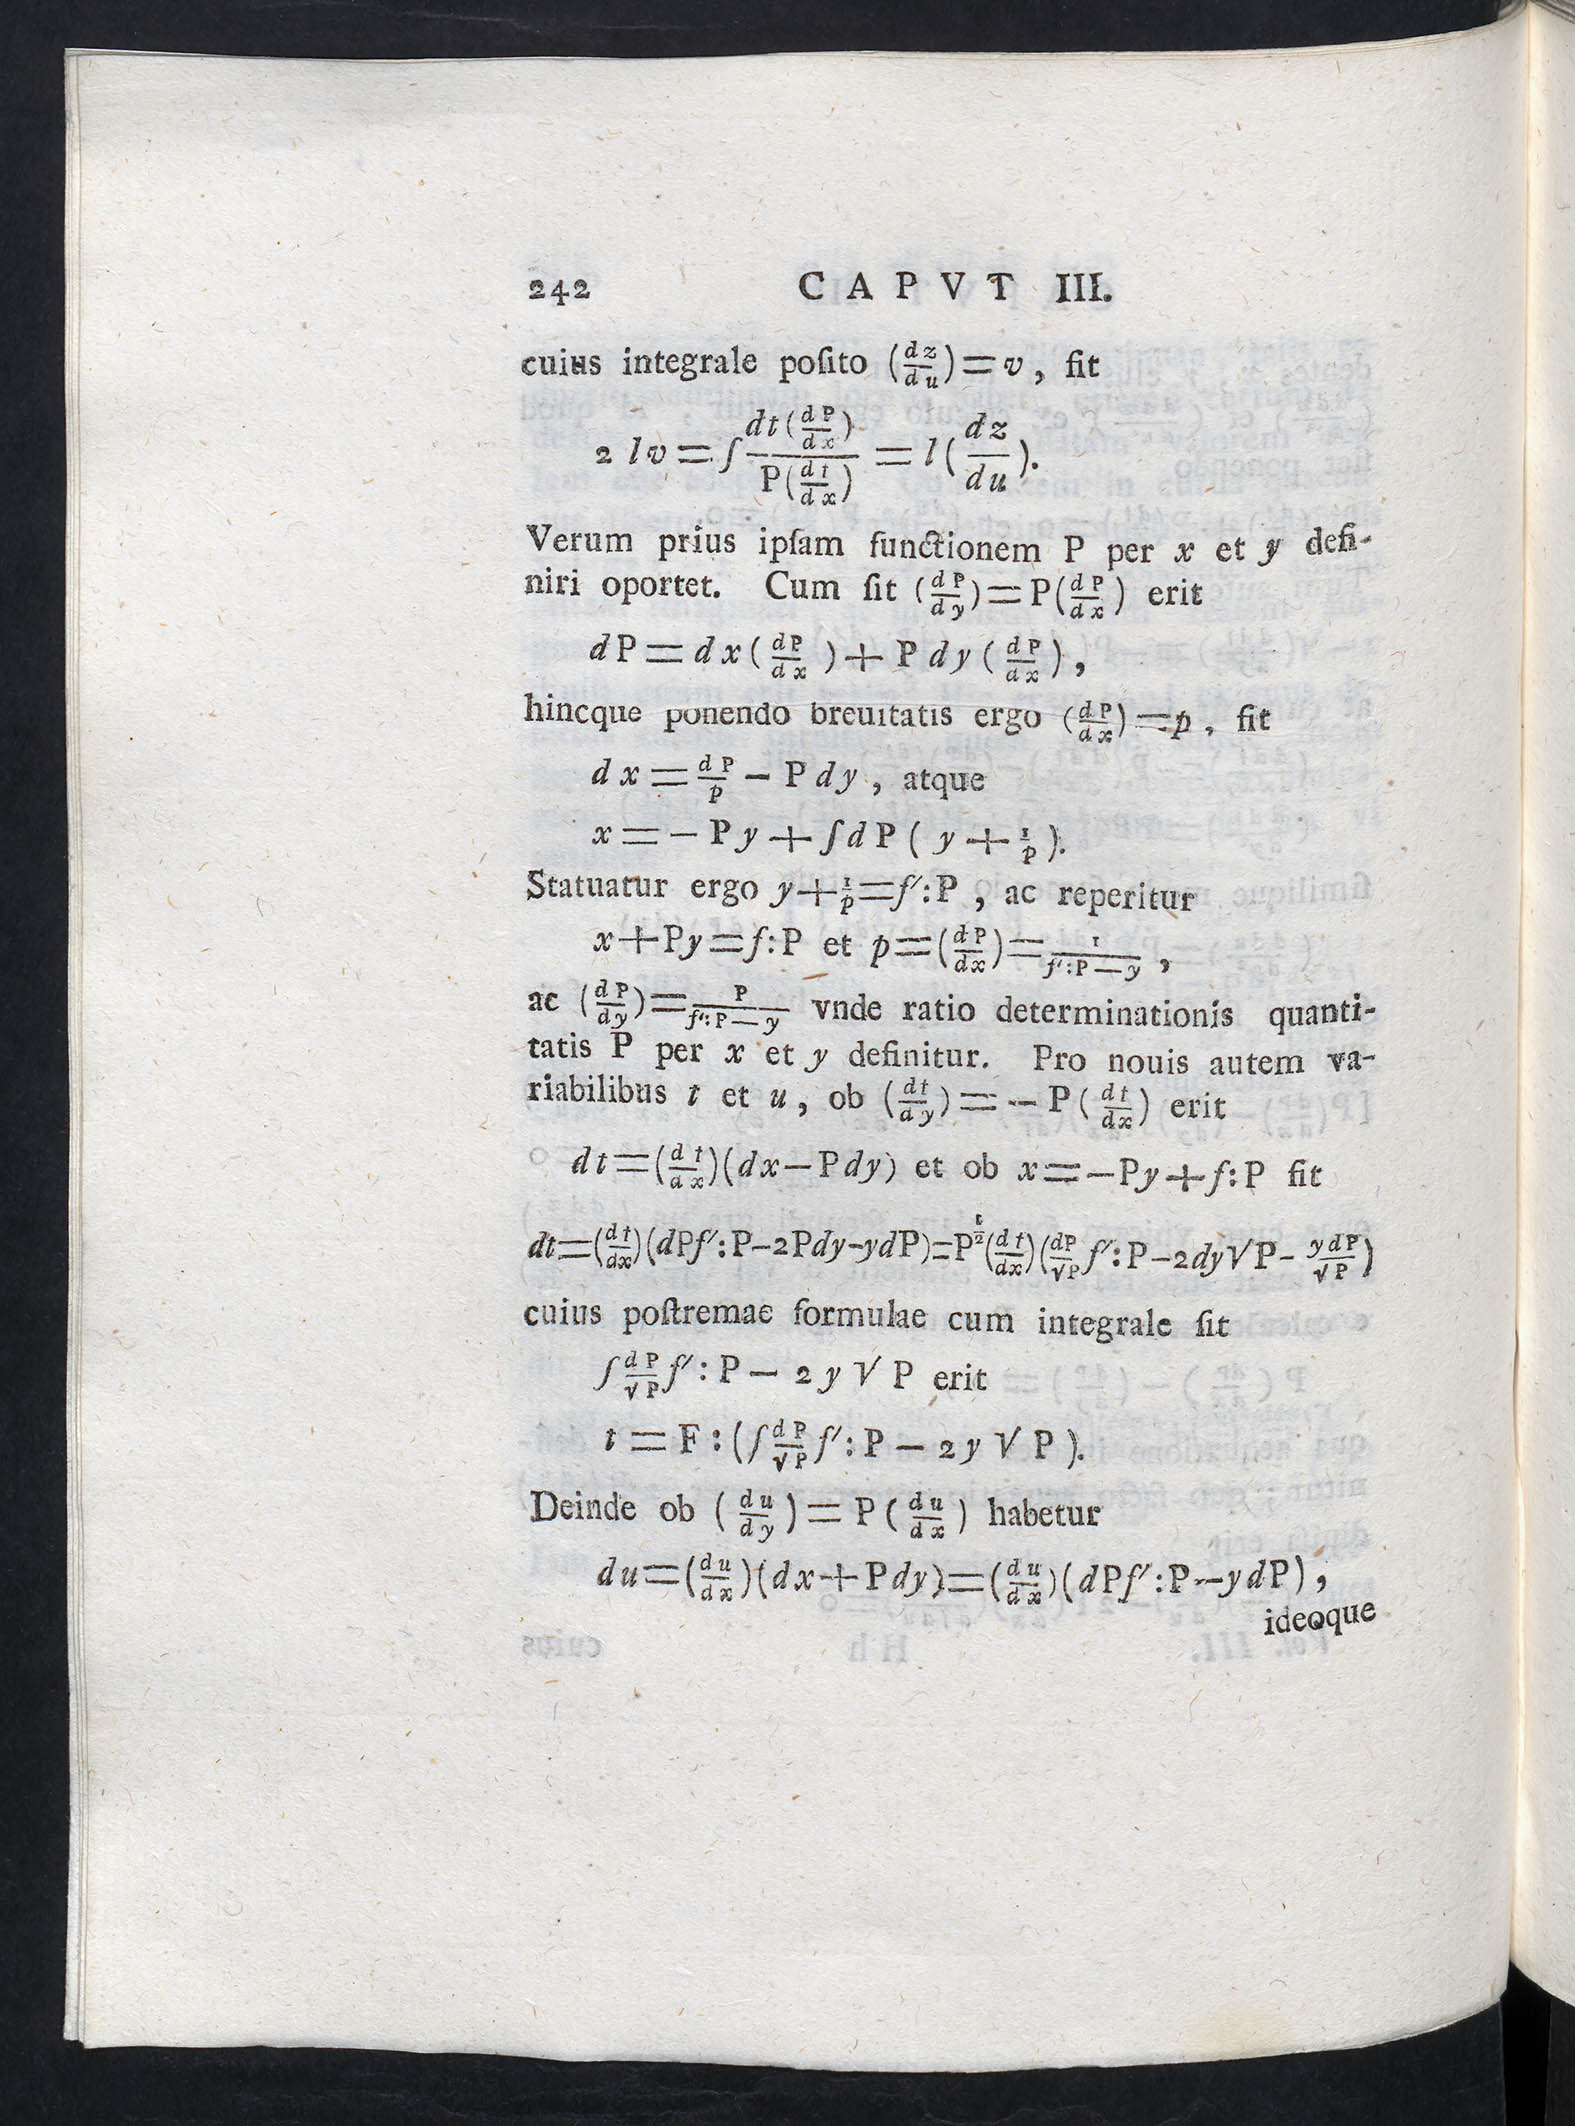 242 CAPVT III.
cuius integrale poſito (dz/du) = v, fit
2 lv = ∫ dt(dP/dx) / P(dt/dx) = l(dz/du).
Verum prius ipſam functionem P per x et y defi-
niri oportet. Cum ſit (dP/dy) = P(dP/dx) erit
dP = dx(dP/dx) + P dy(dP/dx),
hincque ponendo breuitatis ergo (dP/dx) = p, fit
dx = dP/p − P dy, atque
x = − P y + ∫ dP ( y + 1/p ).
Statuatur ergo y + 1/p = f′:P, ac reperitur
x + Py = f:P et p = (dP/dx) = 1/(f′:P − y),
ac (dP/dy) = P/(f′:P − y) vnde ratio determinationis quanti-
tatis P per x et y definitur. Pro nouis autem va-
riabilibus t et u, ob (dt/dy) = − P(dt/dx) erit
dt = (dt/dx)(dx − P dy) et ob x = − Py + f:P fit
dt = (dt/dx)(dP f′:P − 2P dy − y dP) = P^{1/2}(dt/dx)(dP/√P f′:P − 2dy√P − y dP/√P)
cuius poſtremae formulae cum integrale ſit
∫ dP/√P f′:P − 2 y √P erit
t = F:(∫ dP/√P f′:P − 2 y √P).
Deinde ob (du/dy) = P(du/dx) habetur
du = (du/dx)(dx + P dy) = (du/dx)(dP f′:P − y dP),
ideoque